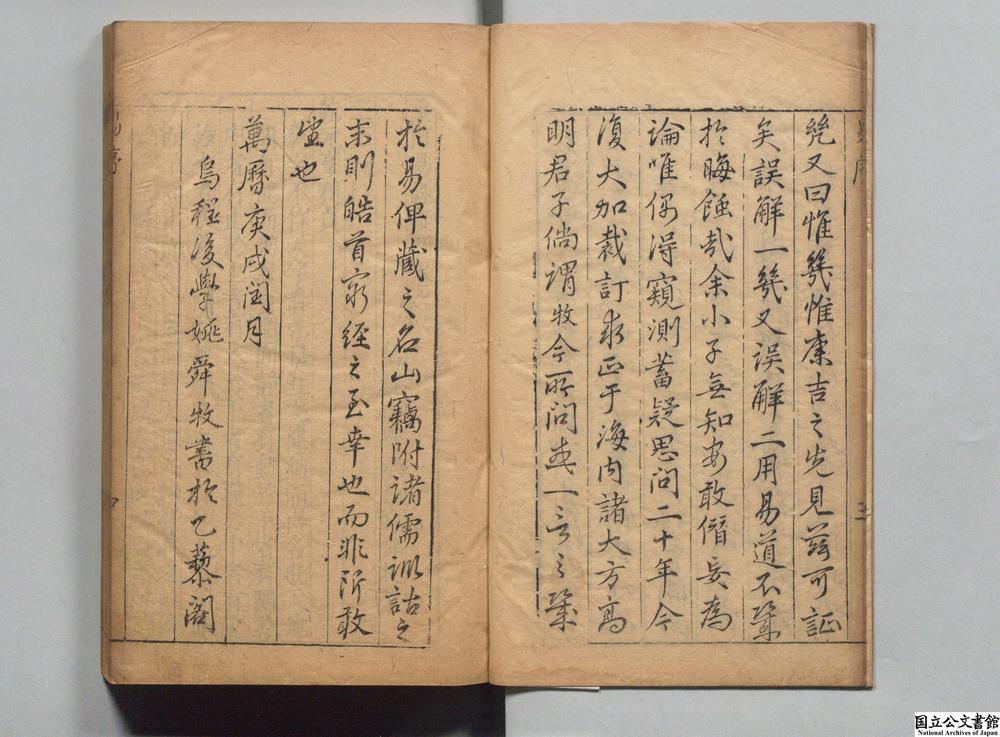 凳又曰惟幾惟康吉之先見茲可証
矣誤解一幾又誤解二用易道不幾
於晦蝕哉余小子無知安敢僭妄為
論唯偶淂窺測蓄疑思問二十年今
復大加裁訂求正于海内諸大方高
明君子倘謂牧今所問或一言之幾
於易俾藏之名山竊附諸儒訓詁之
末則皓首窮經之至幸也而非所敢
望也
萬曆庚戌閏月
烏程後學姚舜牧書於乙藜閣
易序
国立公文書館
National Archives of Japan